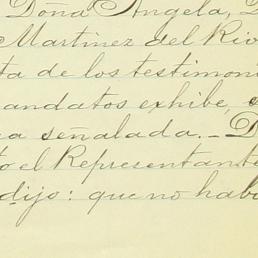 Doña Angela, D
Martinez del Rio
ta de los testimoni
andatos exhibe,
a señalada. - D
to el Representante
dijo: que no hab